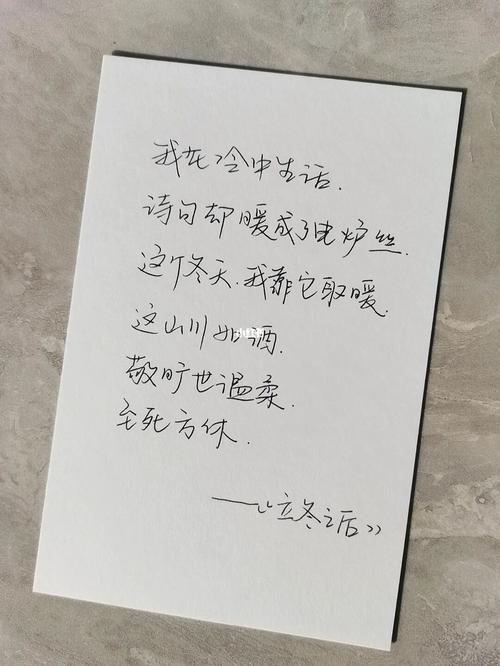 我在冷中生活.
诗句却暖成了电炉丝.
这个冬天.我靠它取暖.
这山川如酒.
小红书
敬旷世温柔.
至死方休.
——《立冬之后》